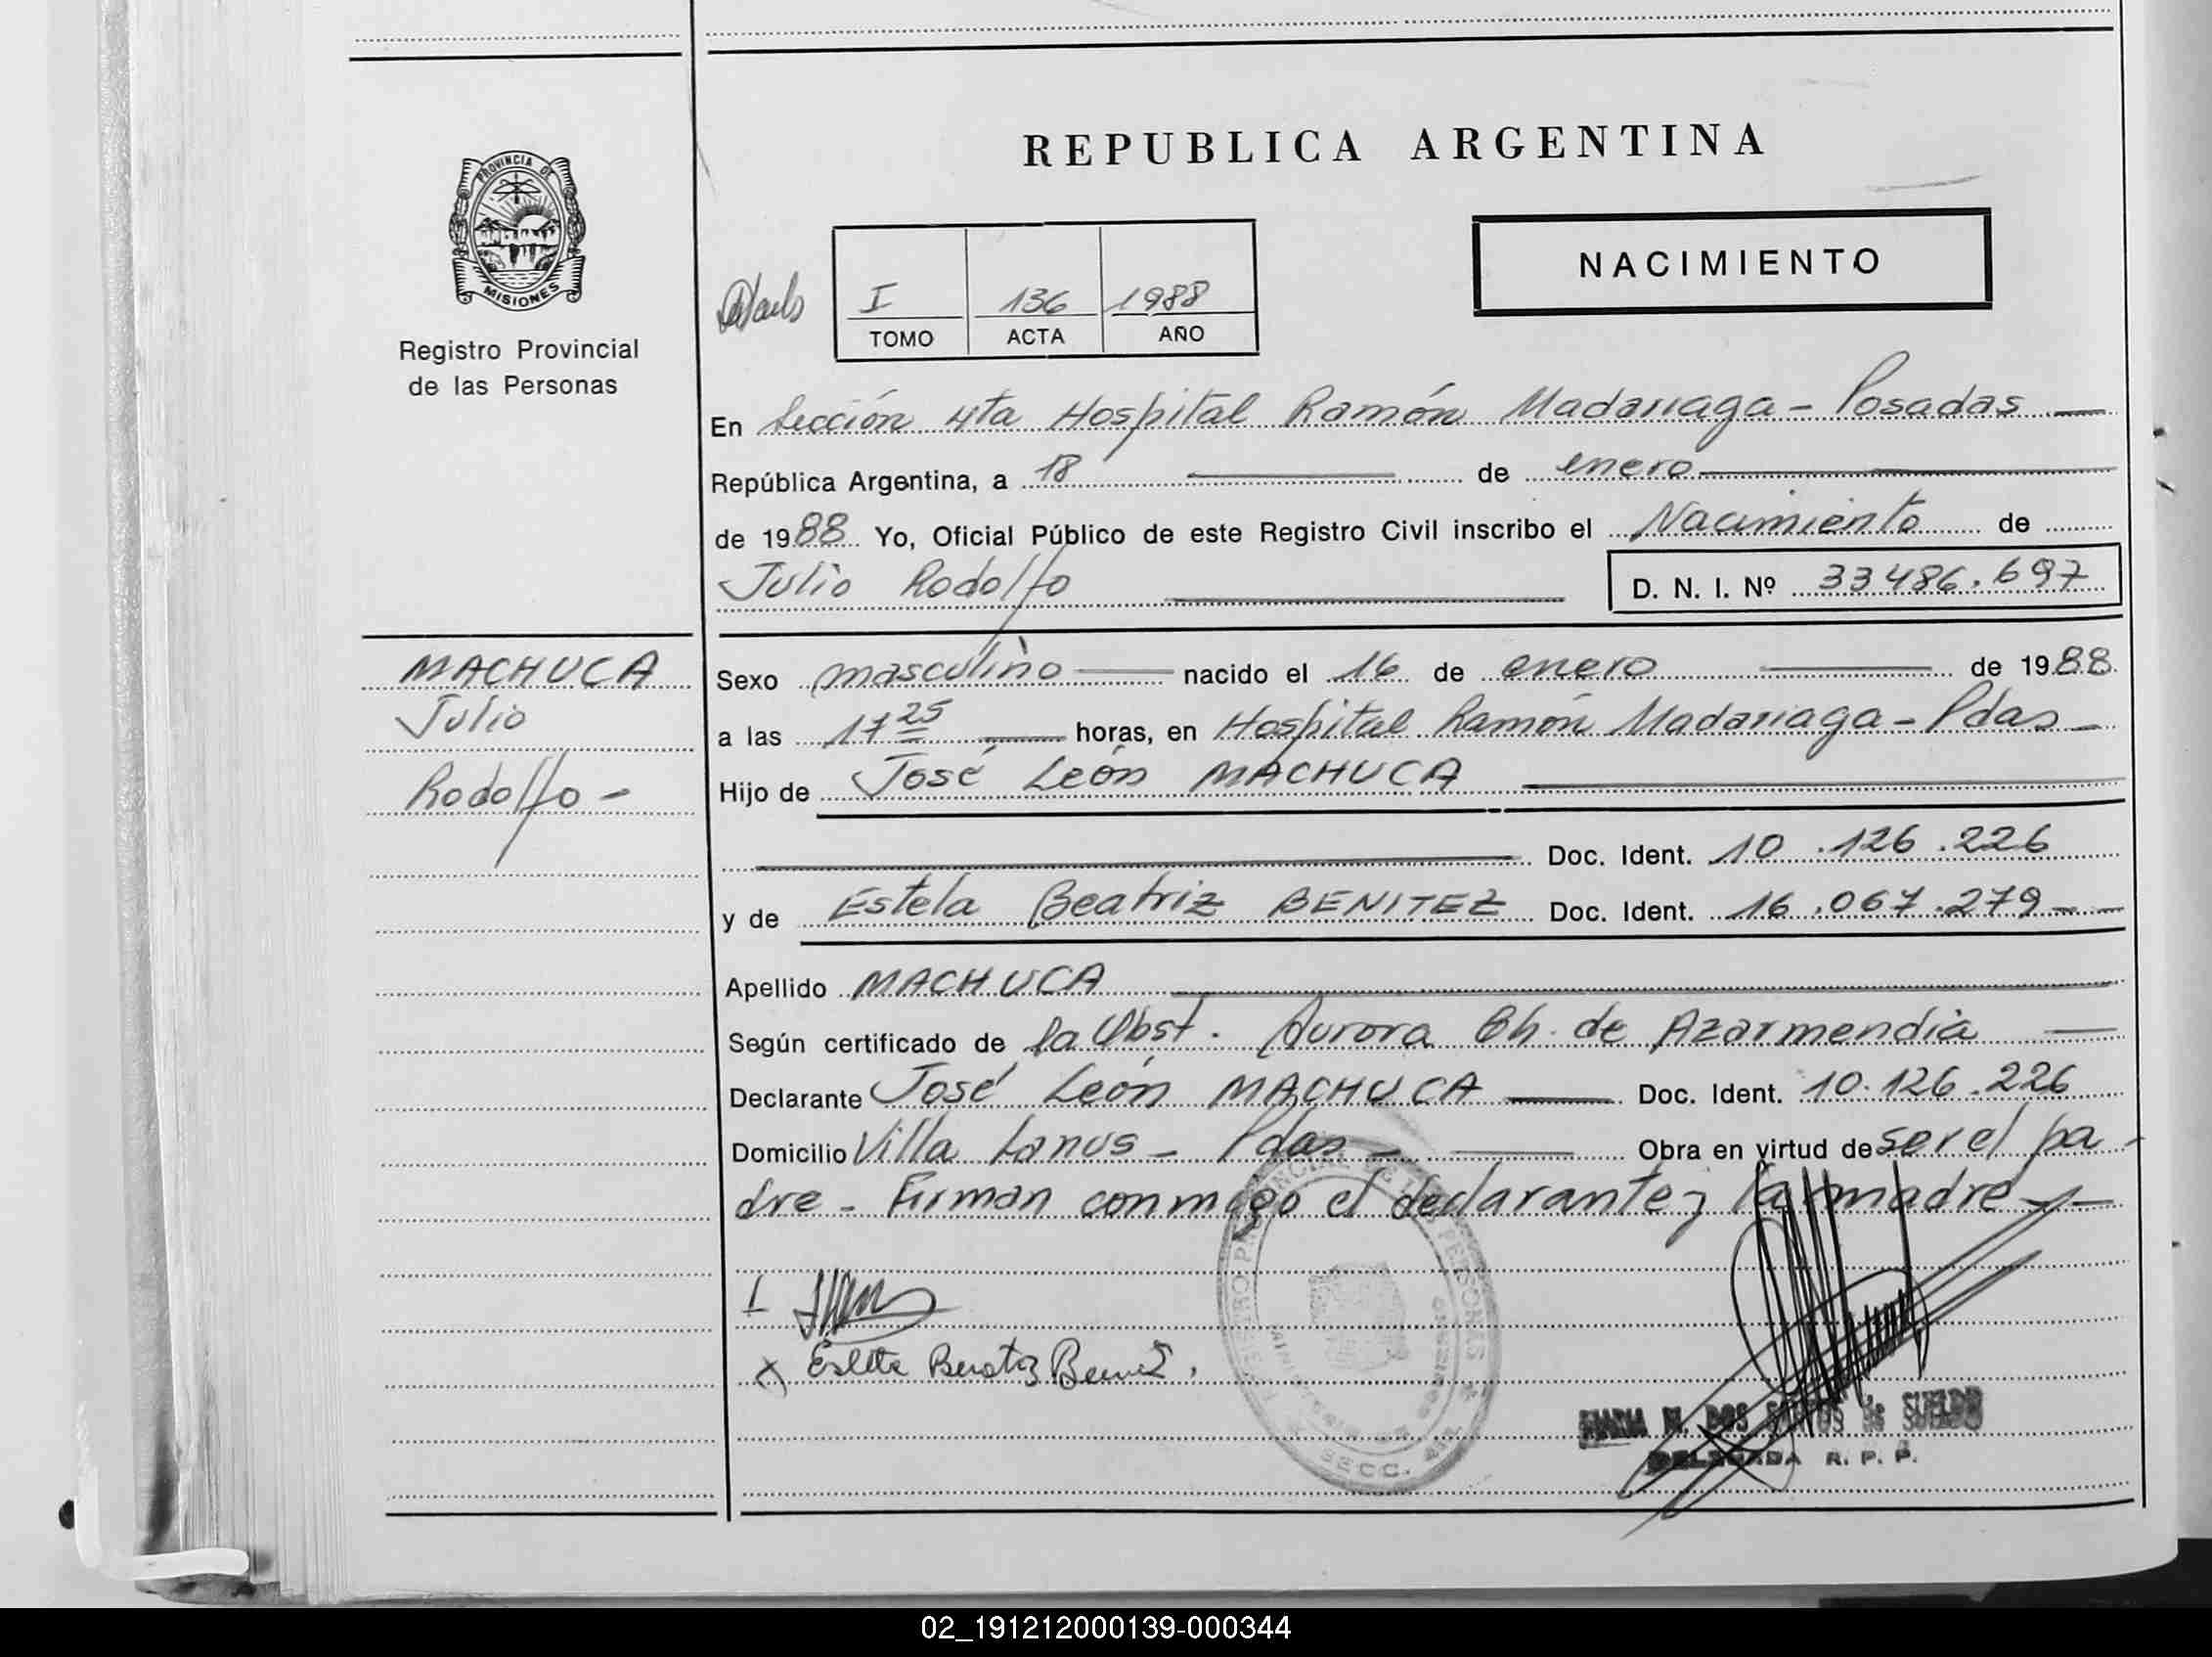 PROVINCIA DE
MISIONES
Registro Provincial
de las Personas
REPUBLICA ARGENTINA
NACIMIENTO
I 136 1988
TOMO ACTA AÑO
En Sección 4ta Hospital Ramón Madariaga - Posadas
República Argentina, a 18 de enero
de 1988 Yo, Oficial Público de este Registro Civil inscribo el Nacimiento de
Julio Rodolfo D. N. I. Nº 33486.697
MACHUCA
Julio
Rodolfo -
Sexo masculino nacido el 16 de enero de 1988
a las 17 25 horas, en Hospital Ramón Madariaga - Pdas
Hijo de José León MACHUCA
Doc. Ident. 10.126.226
y de Estela Beatriz BENITEZ Doc. Ident. 16.067.279
Apellido MACHUCA
Según certificado de la Obst. Aurora Ch. de Azarmendia
Declarante José León MACHUCA Doc. Ident. 10.126.226
Domicilio Villa Lanus - Pdas - Obra en virtud de ser el pa-
dre - Firman conmigo el declarante y la madre
REGISTRO PROVINCIAL DE LAS PERSONAS
SECC. 4ta
MARIA M. DOS SANTOS de SUELDO
DELEGADA R. P. P.
02_191212000139-000344